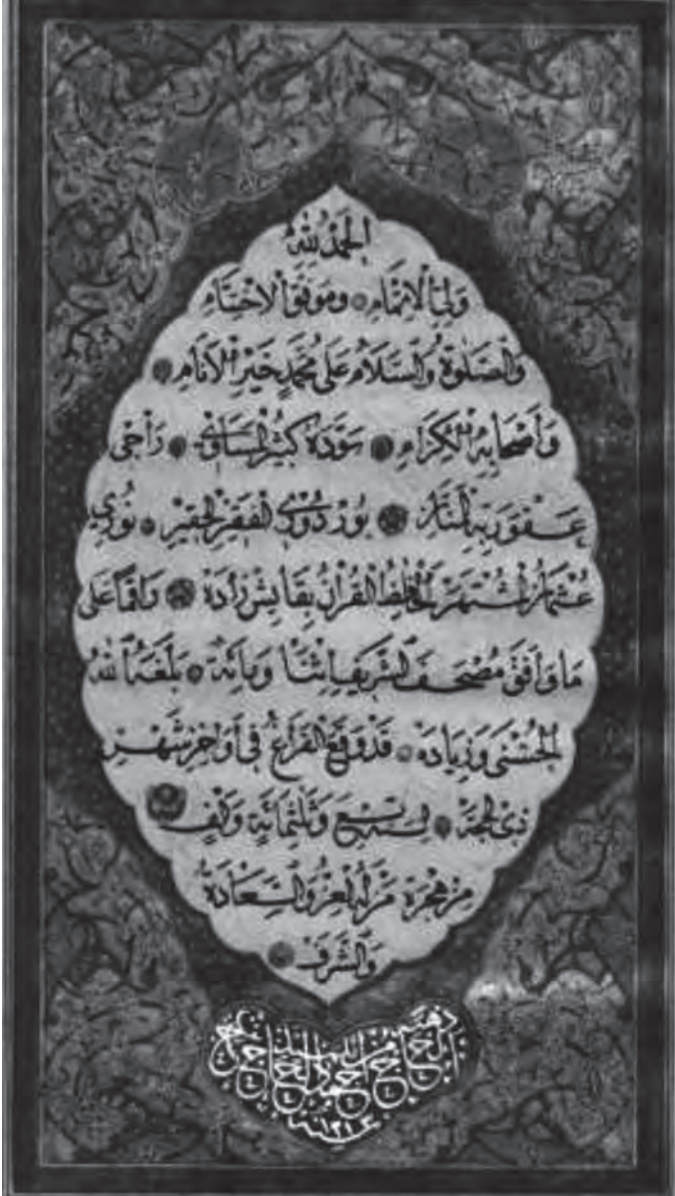 الحمد لله
ولي الإتمام وموفق الاختتام
والصلوة والسلام على محمد خير الأنام
وأصحابه الكرام سوده كثير المساوئ راجى
عفو ربه المنان بوردورى الفقير الحقير نورى
عثمان المشتهر الحافظ القرآن بقايش زاده واقفا على
ما وافق مصحف الشريف اثنا ومائة بلغه الله
الحسنى وزيادة قد وقع الفراغ فى أواخر شهر
ذى الحجة لسنة سبع وثلثمائة وألف
من هجرة من له العز والسعادة
والشرف
ذهبه
الحاج أحمد